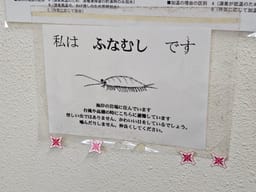 私は ふなむし です
海岸の岩場に住んでいます
台風や高潮の時にこちらに避難しています
怪しい虫ではありません。かわいい目をしているでしょう。
噛んだりしません。仲良くしてください。